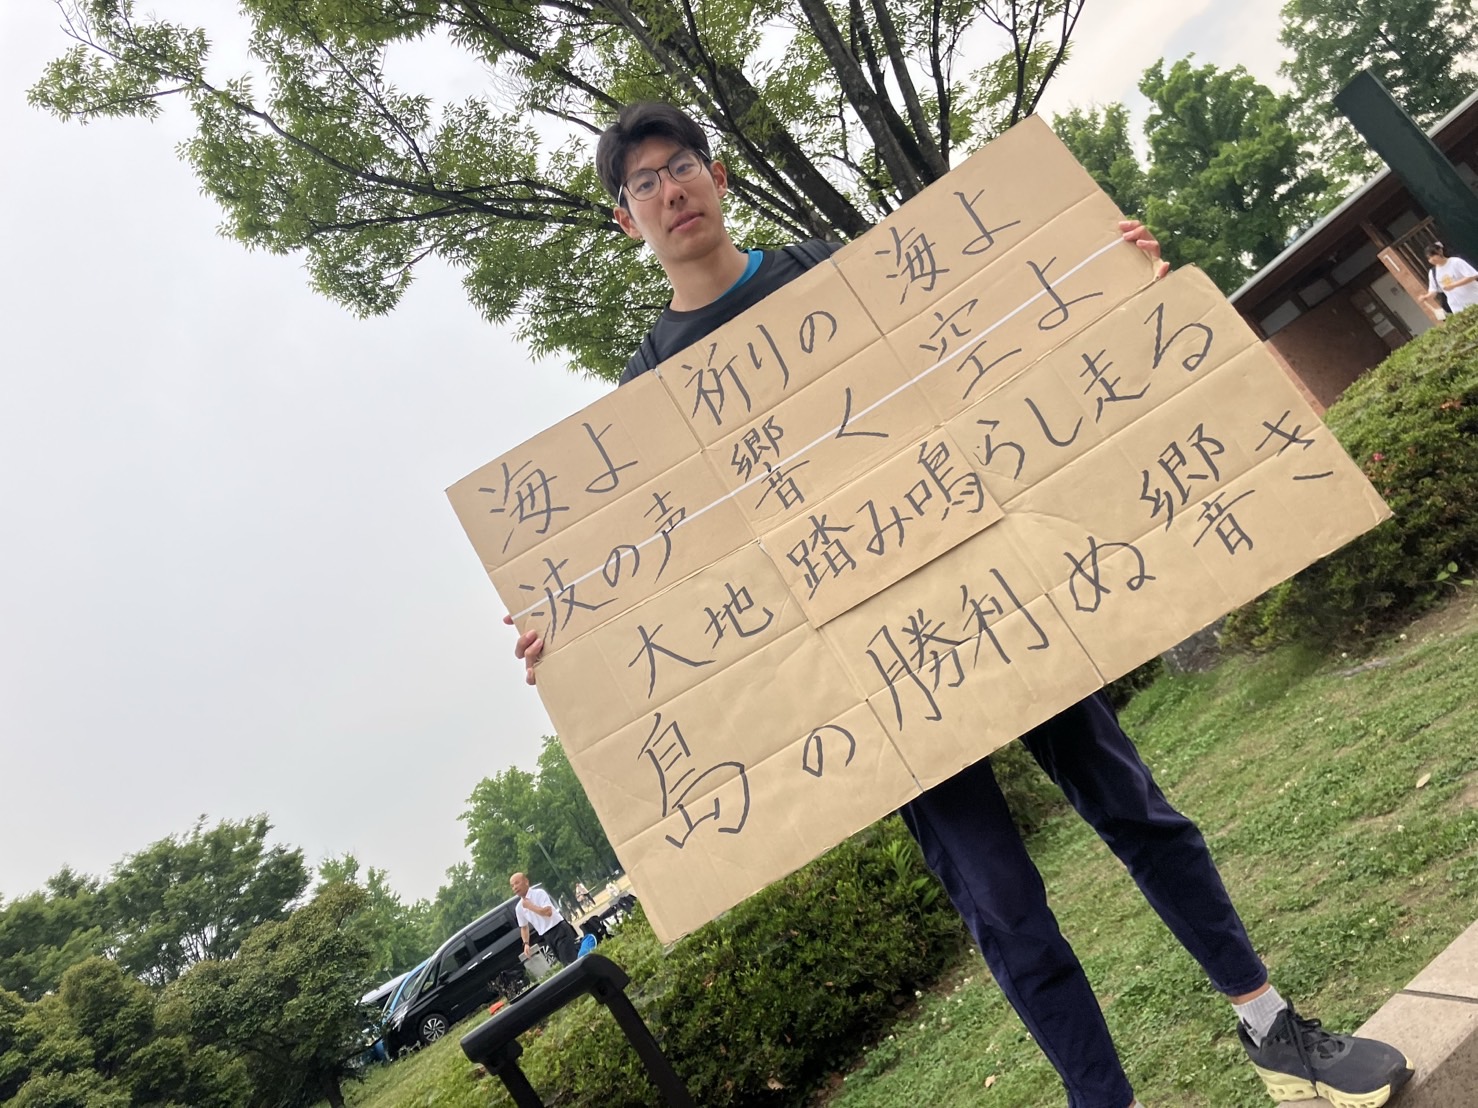 海よ 祈りの 海よ
波の声 響く 空よ
大地 踏み鳴らし 走る
島の勝利ぬ響き